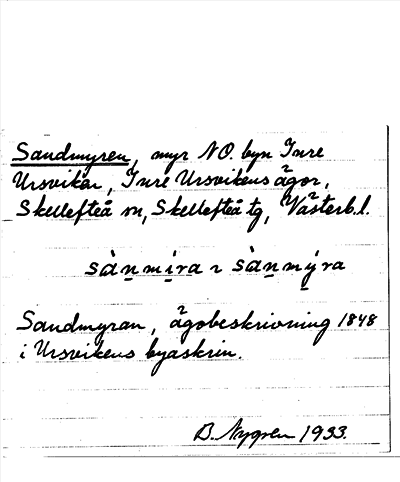 Sandmyren, myr NO. byn Inre
Ursviken, Inre Ursvikens ägor,
Skellefteå sn, Skellefteå tg, Västerb. l.
sànmi̱ra ɿ sànmý̱ra
Sandmyran, ägobeskrivning 1848
i Ursvikens byaskrin.
B. Nygren 1933.